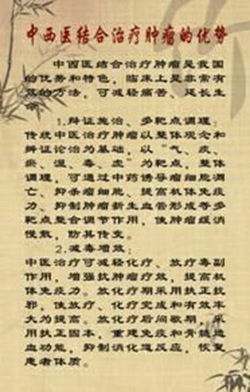 中西医结合治疗肿瘤的优势
中西医结合治疗肿瘤是我国
的优势和特色，临床上是非常有
效的方法，可减轻痛苦、延长生
命。
1.辩证施治、多靶点调理：
传统中医治疗肿瘤以整体观念和
辨证论治为基础，以“气、痰、
瘀、湿、毒、虚”为靶点，整体
调理，可通过中药诱导瘤细胞凋
亡、抑杀瘤细胞、提高机体免疫
力、抑制肿瘤新生血管形成等多
靶点整合调节作用，使肿瘤缓消
慢散，防其传变。
2.减毒增效：
中医治疗可减轻化疗、放疗毒副
作用，增强抗肿瘤疗效，提高机
体免疫力。放化疗期采用扶正抗
邪，使放疗、化疗完成和有效率
大为提高。放化疗后间歇期，采
用扶正固本，重建免疫和骨髓造
血功能，抑制消化道反应，恢复
患者体质。